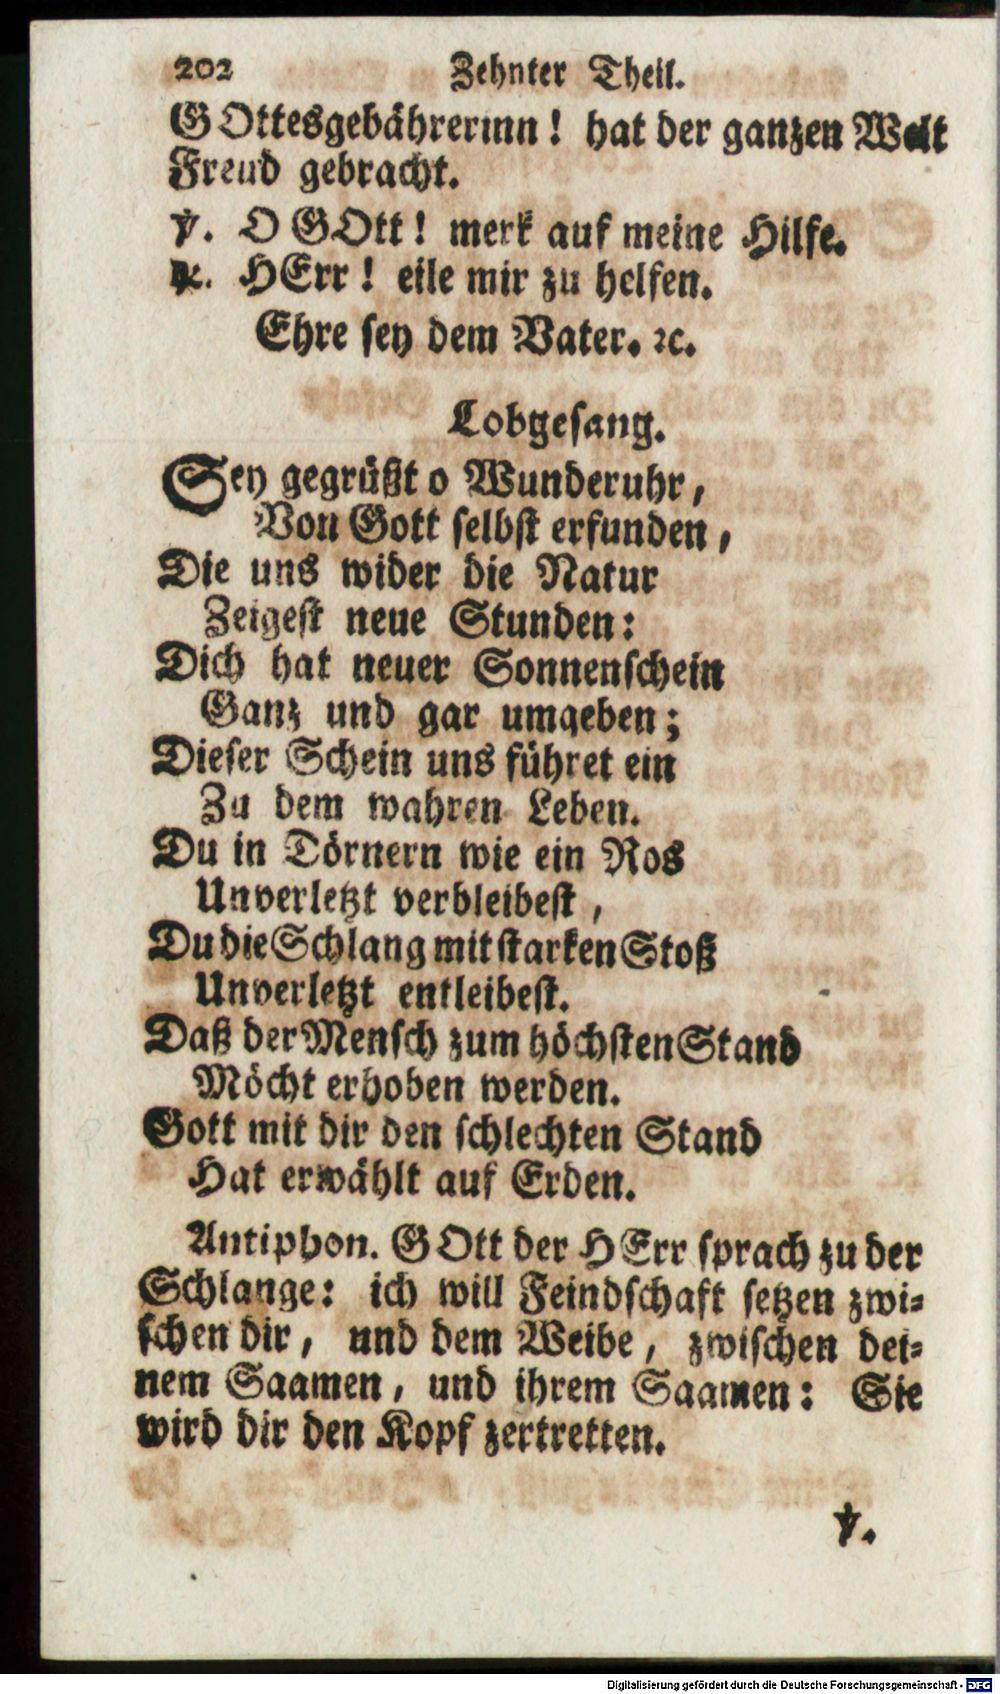 202 Zehnter Theil.
GOttesgebährerinn! hat der ganzen Welt
Freud gebracht.
℣. O GOtt! merk auf meine Hilfe.
℟. HErr! eile mir zu helfen.
Ehre sey dem Vater. ꝛc.
Lobgesang.
Sey gegrüßt o Wunderuhr,
Von Gott selbst erfunden,
Die uns wider die Natur
Zeigest neue Stunden:
Dich hat neuer Sonnenschein
Ganz und gar umgeben;
Dieser Schein uns führet ein
Zu dem wahren Leben.
Du in Dörnern wie ein Ros
Unverletzt verbleibest,
Du die Schlang mit starken Stoß
Unverletzt entleibest.
Daß der Mensch zum höchsten Stand
Möcht erhoben werden.
Gott mit dir den schlechten Stand
Hat erwählt auf Erden.
Antiphon. GOtt der HErr sprach zu der
Schlange: ich will Feindschaft setzen zwi-
schen dir, und dem Weibe, zwischen dei-
nem Saamen, und ihrem Saamen: Sie
wird dir den Kopf zertretten.
℣.
Digitalisierung gefördert durch die Deutsche Forschungsgemeinschaft - DFG